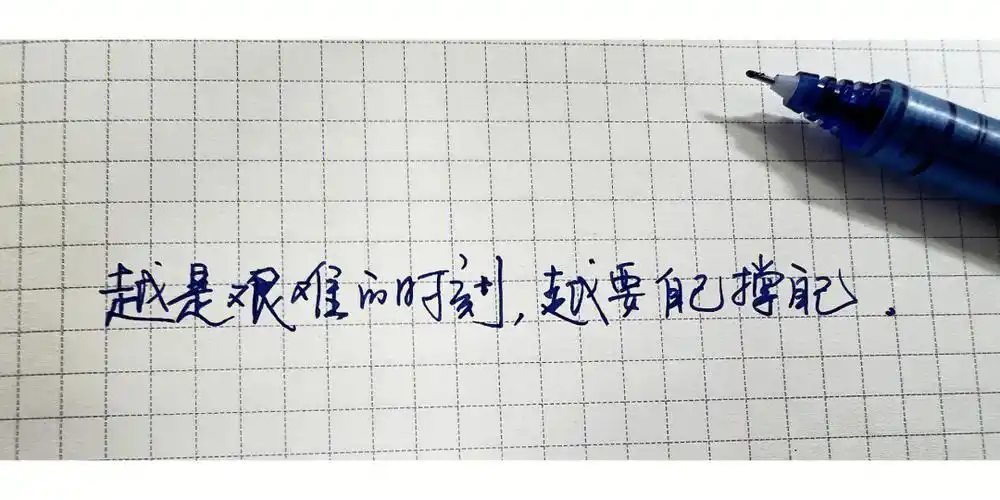 越是艰难的时刻,越要自己撑自己.